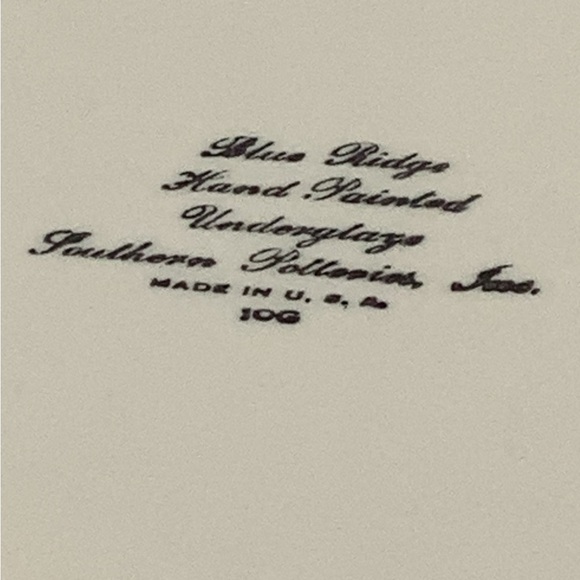 Blue Ridge
Hand Painted
Underglaze
Southern Potteries, Inc.
MADE IN U. S. A.
10G